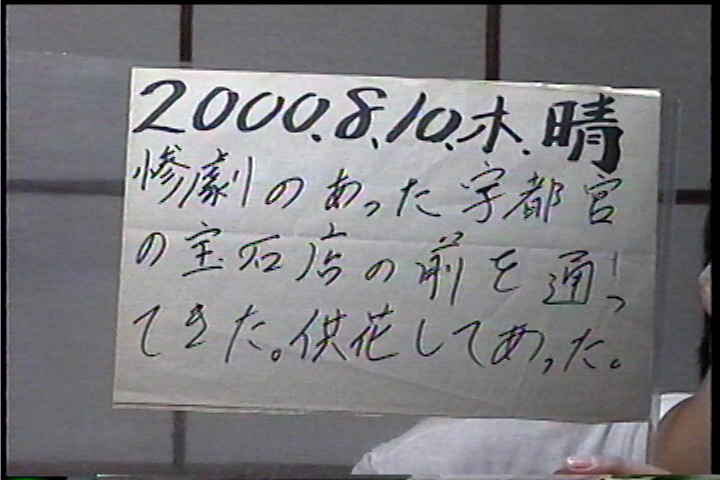 2000.8.10.木.晴
惨劇のあった宇都宮
の宝石店の前を通っ
てきた。供花してあった。